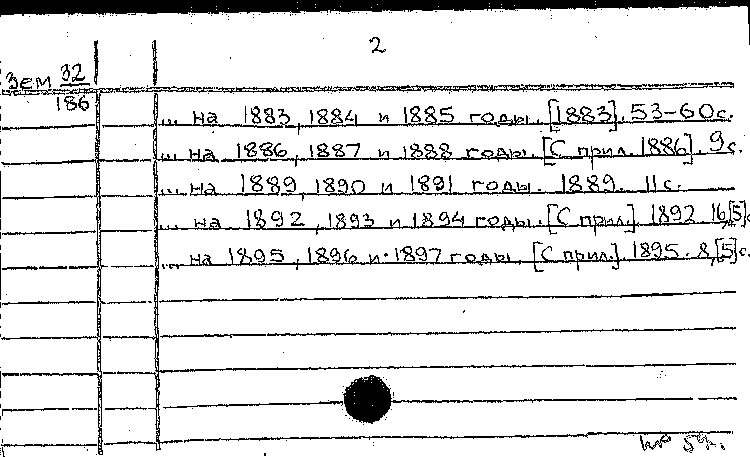 2
Зем 32
186
... на 1883, 1884 и 1885 годы. [1883]. 53-60с.
... на 1886, 1887 и 1888 годы. [С прил. 1886]. 9с.
... на 1889, 1890 и 1891 годы. 1889. 11с.
... на 1892, 1893 и 1894 годы. [С прил.]. 1892. 16,[5]с.
... на 1895, 1896 и 1897 годы. [С прил.]. 1895. 8,[5]с.